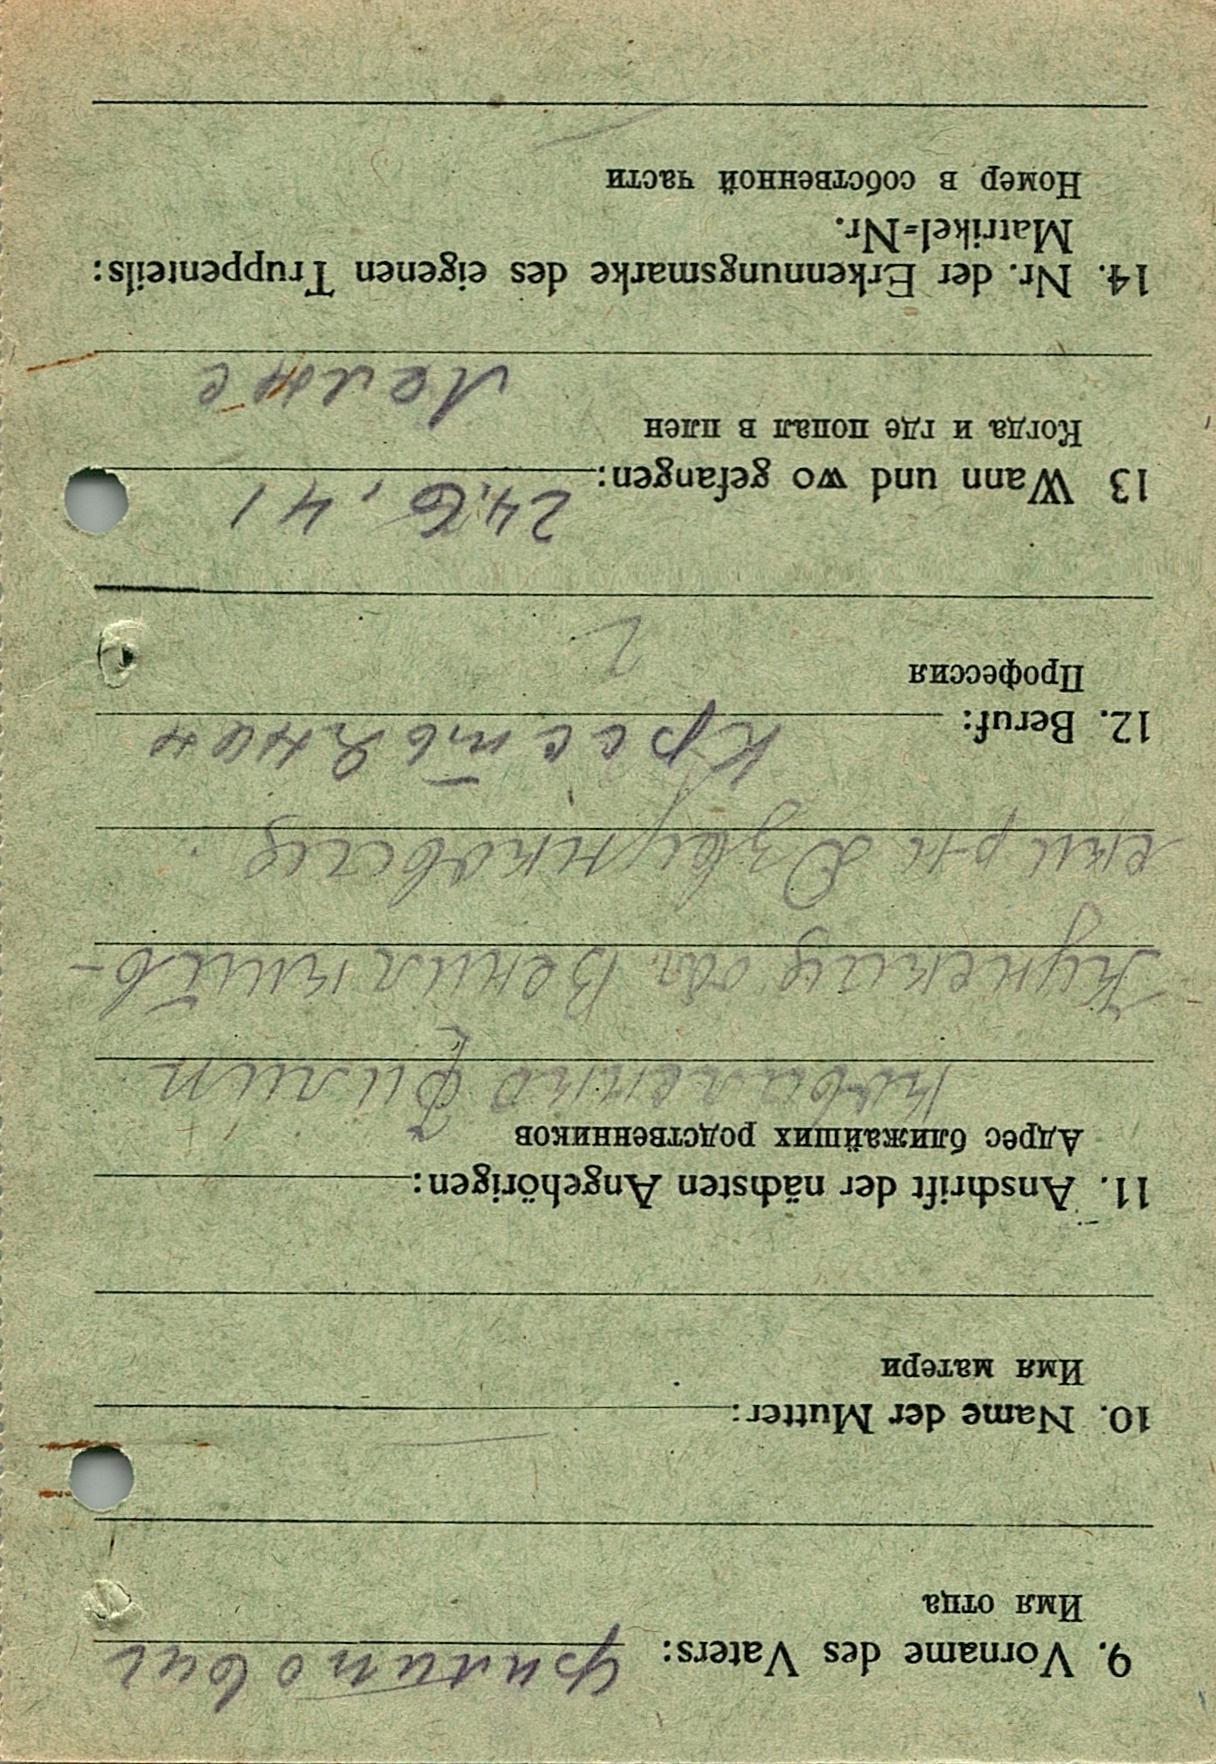 9. Vorname des Vaters: Филипович
Имя отца
10. Name der Mutter:
Имя матери
11. Anschrift der nächsten Angehörigen:
Адрес ближайших родственников
Филип
обл.
р-н
12. Beruf: Крестьянин
Профессия
13 Wann und wo gefangen: 24,6,41
Когда и где попал в плен
14. Nr. der Erkennungsmarke des eigenen Truppenteils:
Matrikel=Nr.
Номер в собственной части